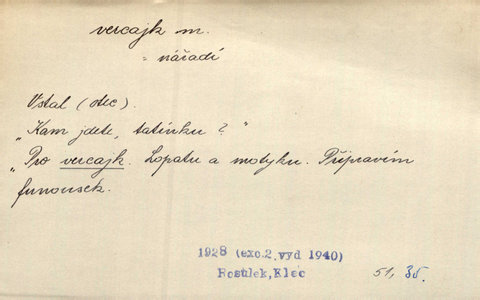 vercajk m.
= nářadí
Vstal (otec).
„Kam jdete, tatínku?"
„Pro vercajk. Lopatu a motyku. Připravím
funousek.
1928 (exc.2.vyd 1940)
Rostlek, Klec
51, 35.